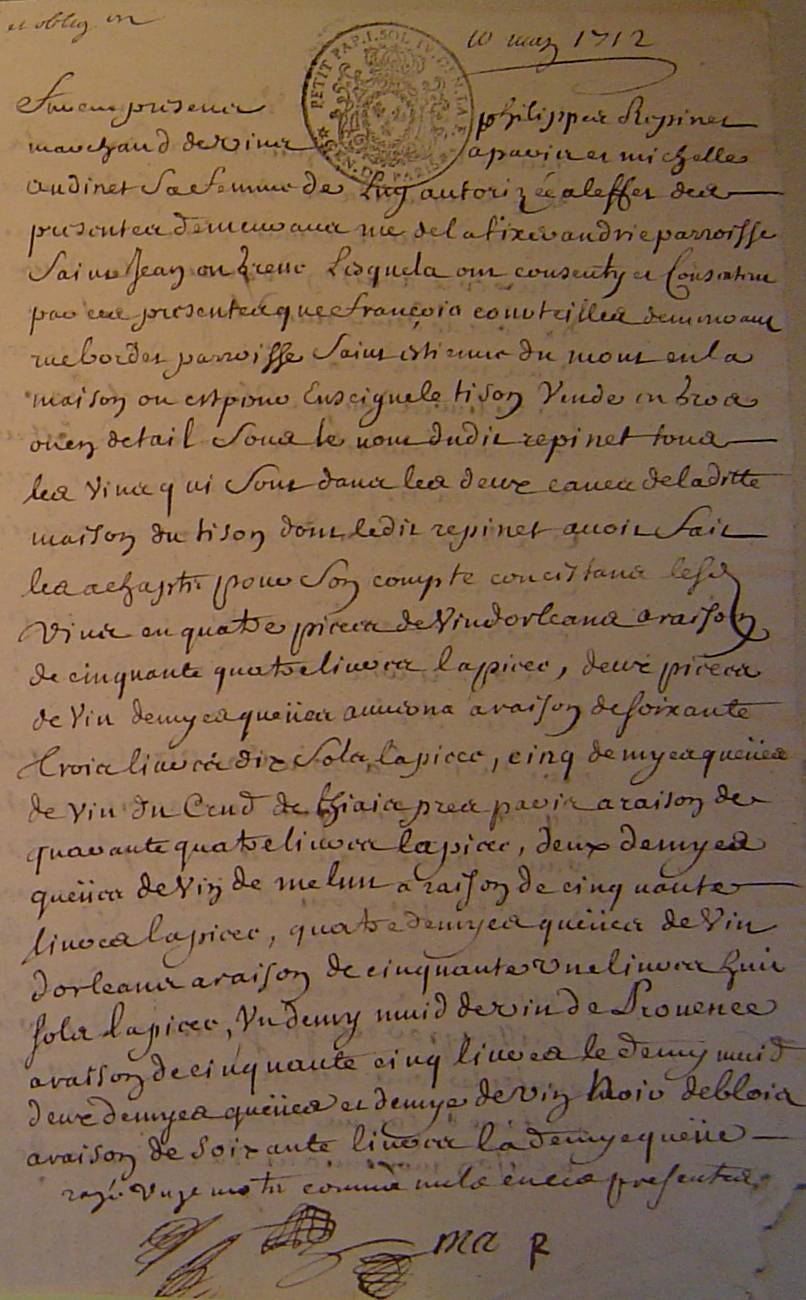 et oblig on
10 may 1712
PETIT PAP. 1. SOL. IV. DEN. LA FE.
GEN. DE PARIS
Furent presens philippes Repinet
marchand de vins a paris et michelle
audinet sa femme de luy autorizée a leffet des
presentes demeurans rue de la tixerandrie parroisse
Saint Jean en Greve lesquels ont consenty et Consentent
par ces presentes que françois couvteilles demeurant
rue bordet parroisse Saint estienne du mont en la
maison ou est pour Enseigne le tison Vende en gros
ou en detail Sous le nom dudit repinet tous
les Vins qui Sont dans les deux caves de laditte
maison du tison dont ledit repinet avoit fait
les achapts pour Son compte concistans lesd
Vins en quatre pieces de Vin dorleans a raison
de cinquante quatre livres la piece, deux pieces
de Vin demyes queües a raison de soixante
trois livres dix Sols la piece, cinq demyes queües
de Vin du Crud de thiais pres paris a raison de
quarante quatre livres la piece, deux demyes
queües de Vin de melun a raison de cinquante
livres la piece, quatre demyes queües de Vin
dorleans a raison de cinquante une livres huit
sols la piece, Un demy muid de vin de Provence
a raison de cinquante cinq livres le demy muid
deux demyes queües et demye de Vin Noir de blois
a raison de soixante livres la demye queüe
rayé Unze mots comme nuls en ces presentes
ma R